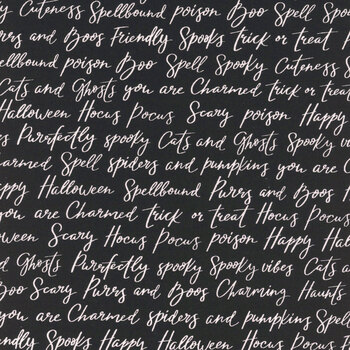 y Cuteness Spellbound poison Boo Spell Spoo
Purrs and Boos Friendly Spooks trick or treat P
Spellbound poison Boo Spell Spooky Cuteness S
Cats and Ghosts you are Charmed trick or treat
Halloween Hocus Pocus Scary poison Happy
es Purrfectly spooky Cats and Ghosts Spooky vib
armed Spell spiders and pumpkins you are C
appy Halloween Spellbound Purrs and Boos H
ou are Charmed trick or treat Hocus Pocus
oween Scary Hocus Pocus poison Happy Hal
d Ghosts Purrfectly spooky Spooky vibes Cats a
Boo Scary Purrs and Boos Charming Haunts
ou are Charmed spiders and pumpkins Spell
iendly Spooks Happy Halloween Hocus Pocus F